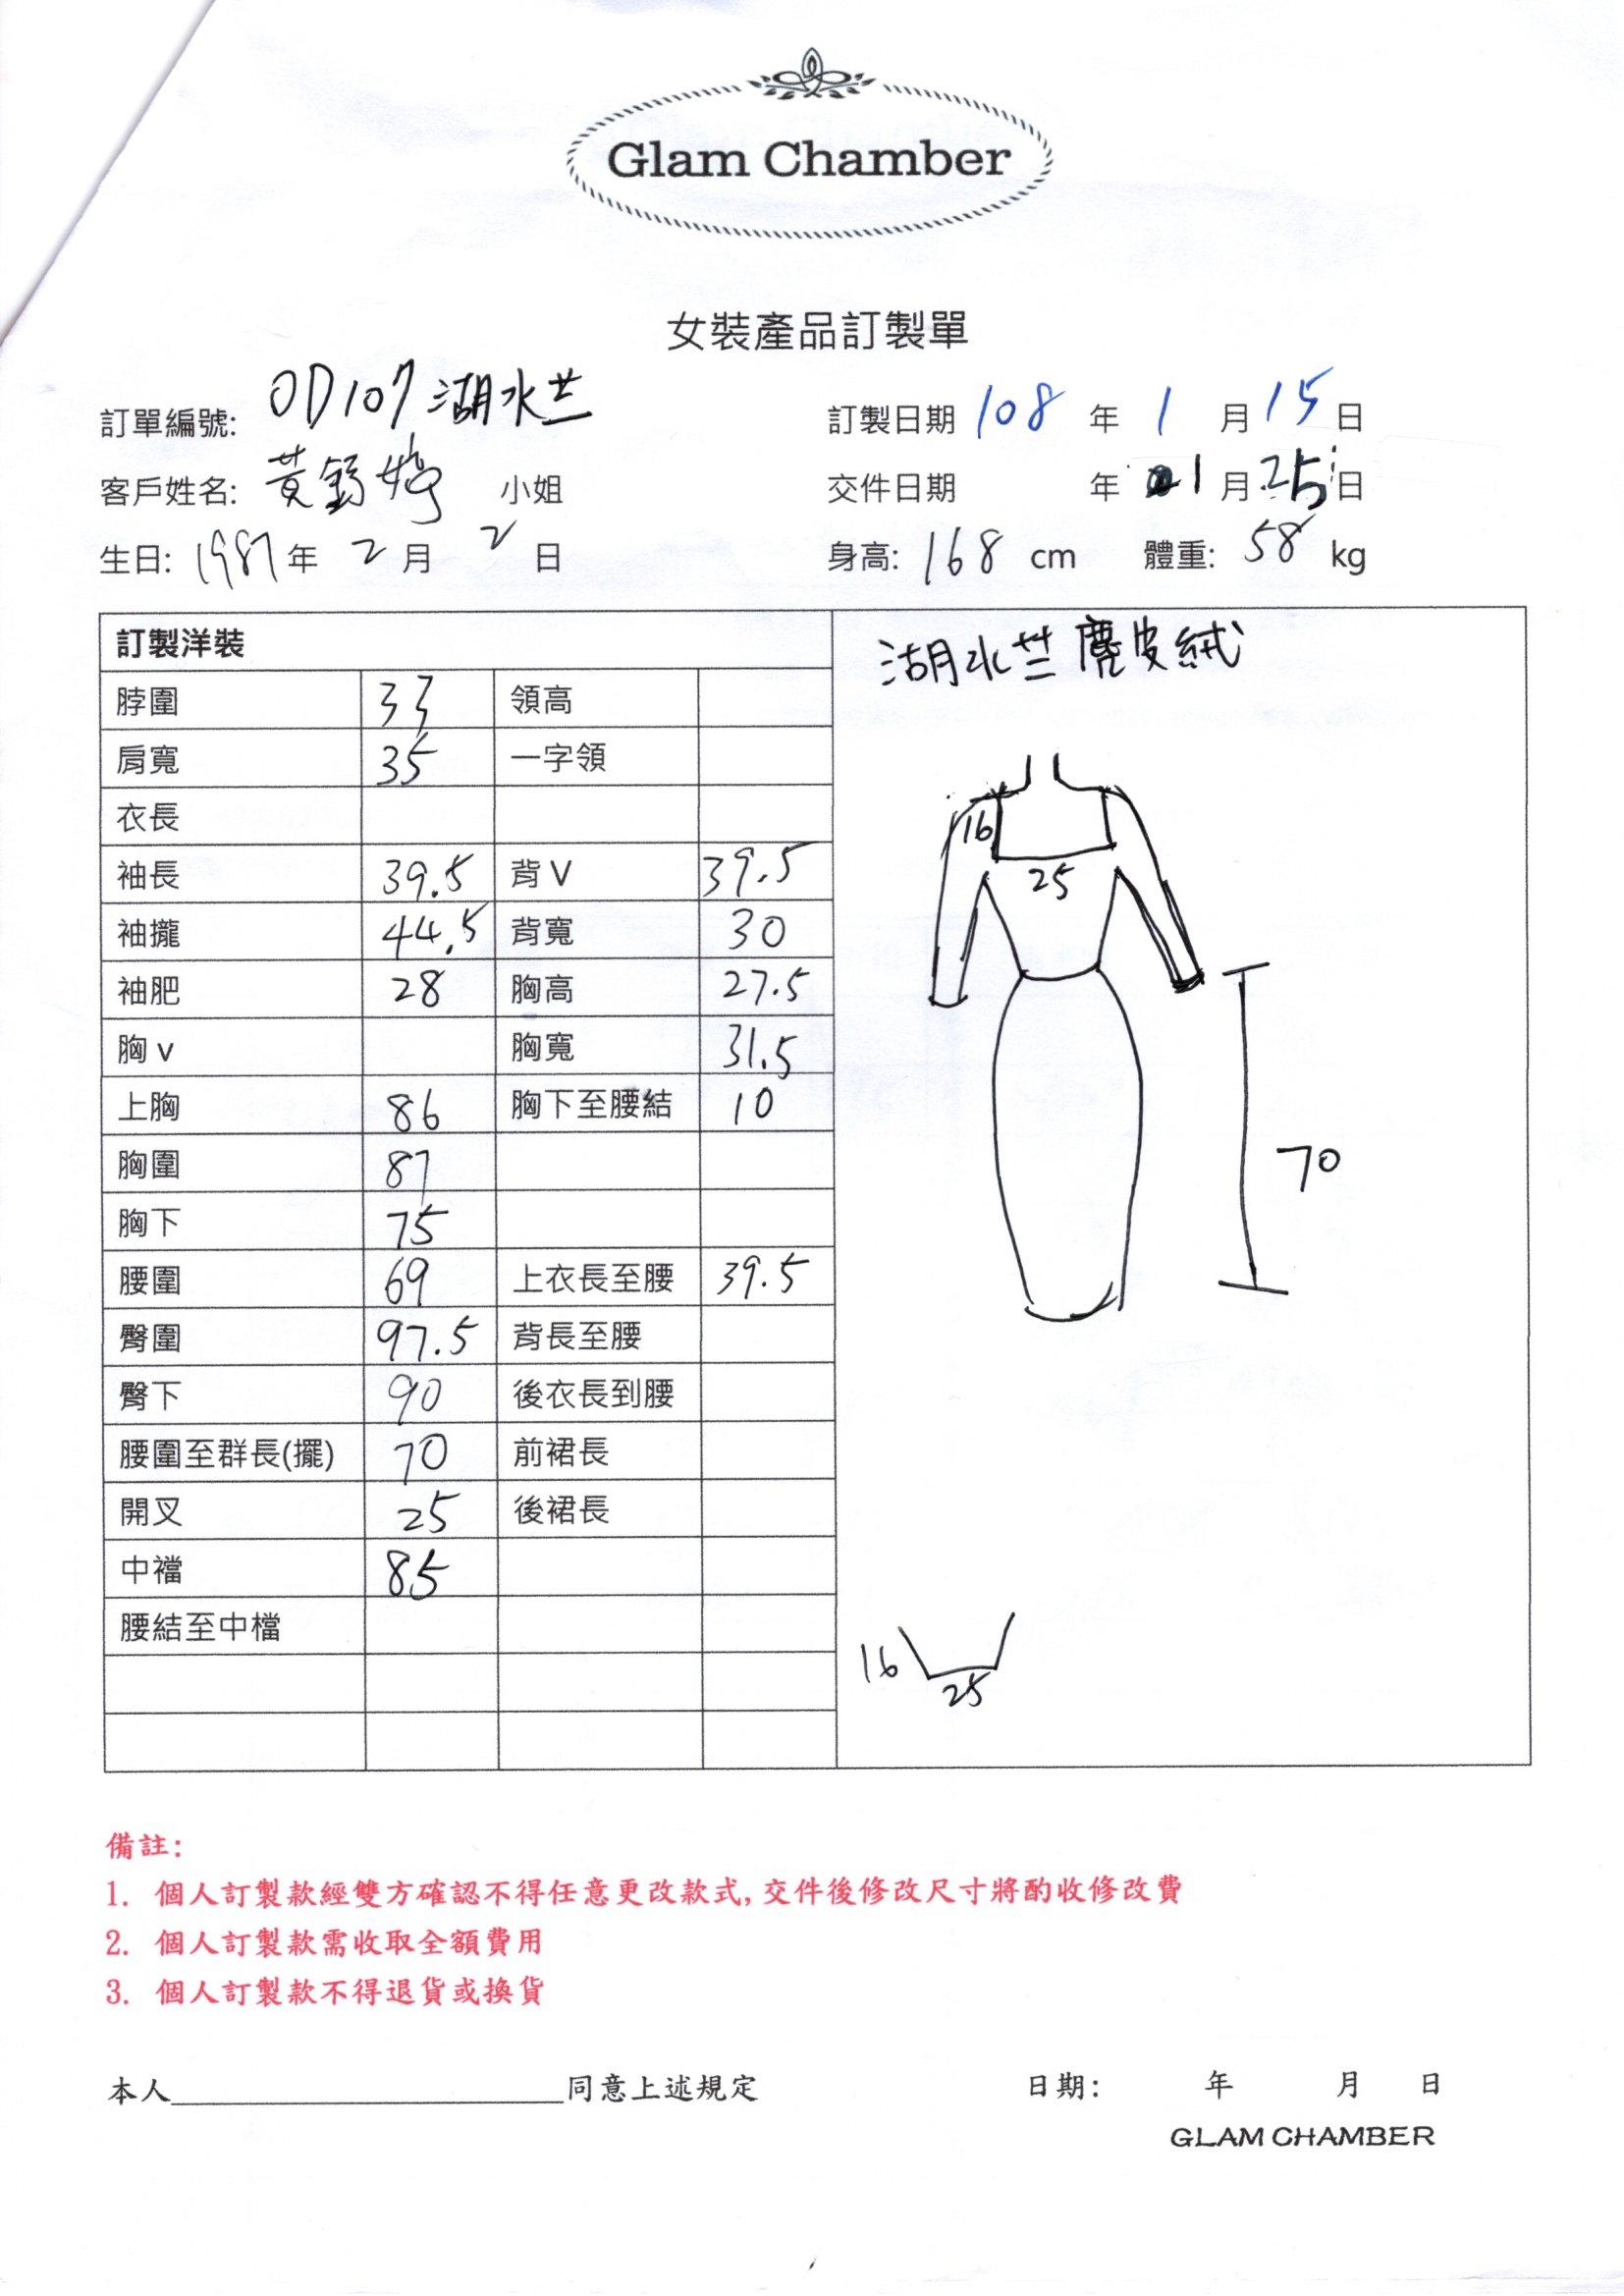 Glam Chamber
女裝產品訂製單
訂單編號: OD107 湖水芒
訂製日期 108 年 1 月 15 日
客戶姓名: 黃鈞婷 小姐
交件日期 年 1 月 25 日
生日: 1987 年 2 月 2 日
身高: 168 cm 體重: 58 kg
訂製洋裝
脖圍 33 領高
肩寬 35 一字領
衣長
袖長 39.5 背V 39.5
袖攏 44.5 背寬 30
袖肥 28 胸高 27.5
胸v 胸寬 31.5
上胸 86 胸下至腰結 10
胸圍 87
胸下 75
腰圍 69 上衣長至腰 39.5
臀圍 97.5 背長至腰
臀下 90 後衣長到腰
腰圍至群長(擺) 70 前裙長
開叉 25 後裙長
中襠 85
腰結至中檔
湖水芒麂皮絨
16
25
70
16
25
備註:
1. 個人訂製款經雙方確認不得任意更改款式,交件後修改尺寸將酌收修改費
2. 個人訂製款需收取全額費用
3. 個人訂製款不得退貨或換貨
本人 同意上述規定
日期: 年 月 日
GLAM CHAMBER